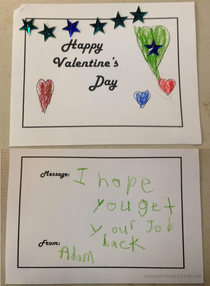 Happy
Valentine's
Day
Message:
I hope
you get
your Job
back
From:
Adam